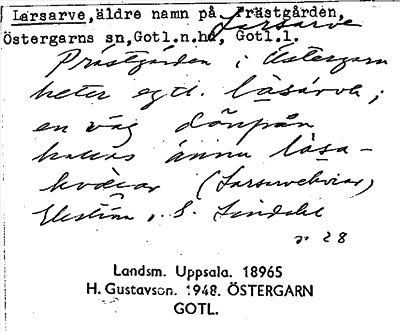 Larsarve,äldre namn på Prästgården,
Larsarve
Östergarns sn,Gotl.n.hd, Gotl.l.
Prästgården i Östergarn
heter egtl. låsarve;
en väg dänpån
kallas ännu låsa-
kväiar (Larsarvekviar)
S. Lindahl
s. 28
Landsm. Uppsala. 18965
H. Gustavson. 1948. ÖSTERGARN
GOTL.